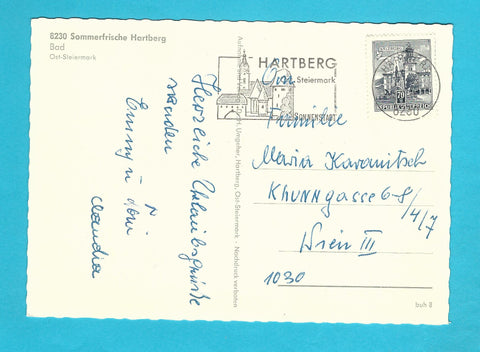 8230 Sommerfrische Hartberg
Bad
Ost-Steiermark
Herzliche Urlaubsgrüße
senden
Emmy u
Claudia
HARTBERG
Steiermark
SONNENSTADT
8230
REPUBLIK ÖSTERREICH
An
Familie
Maria Karanitsch
Khunngasse 6-8/4/7
Wien III
1030
Umgeher, Hartberg, Ost-Steiermark - Nachdruck verboten
buh 8